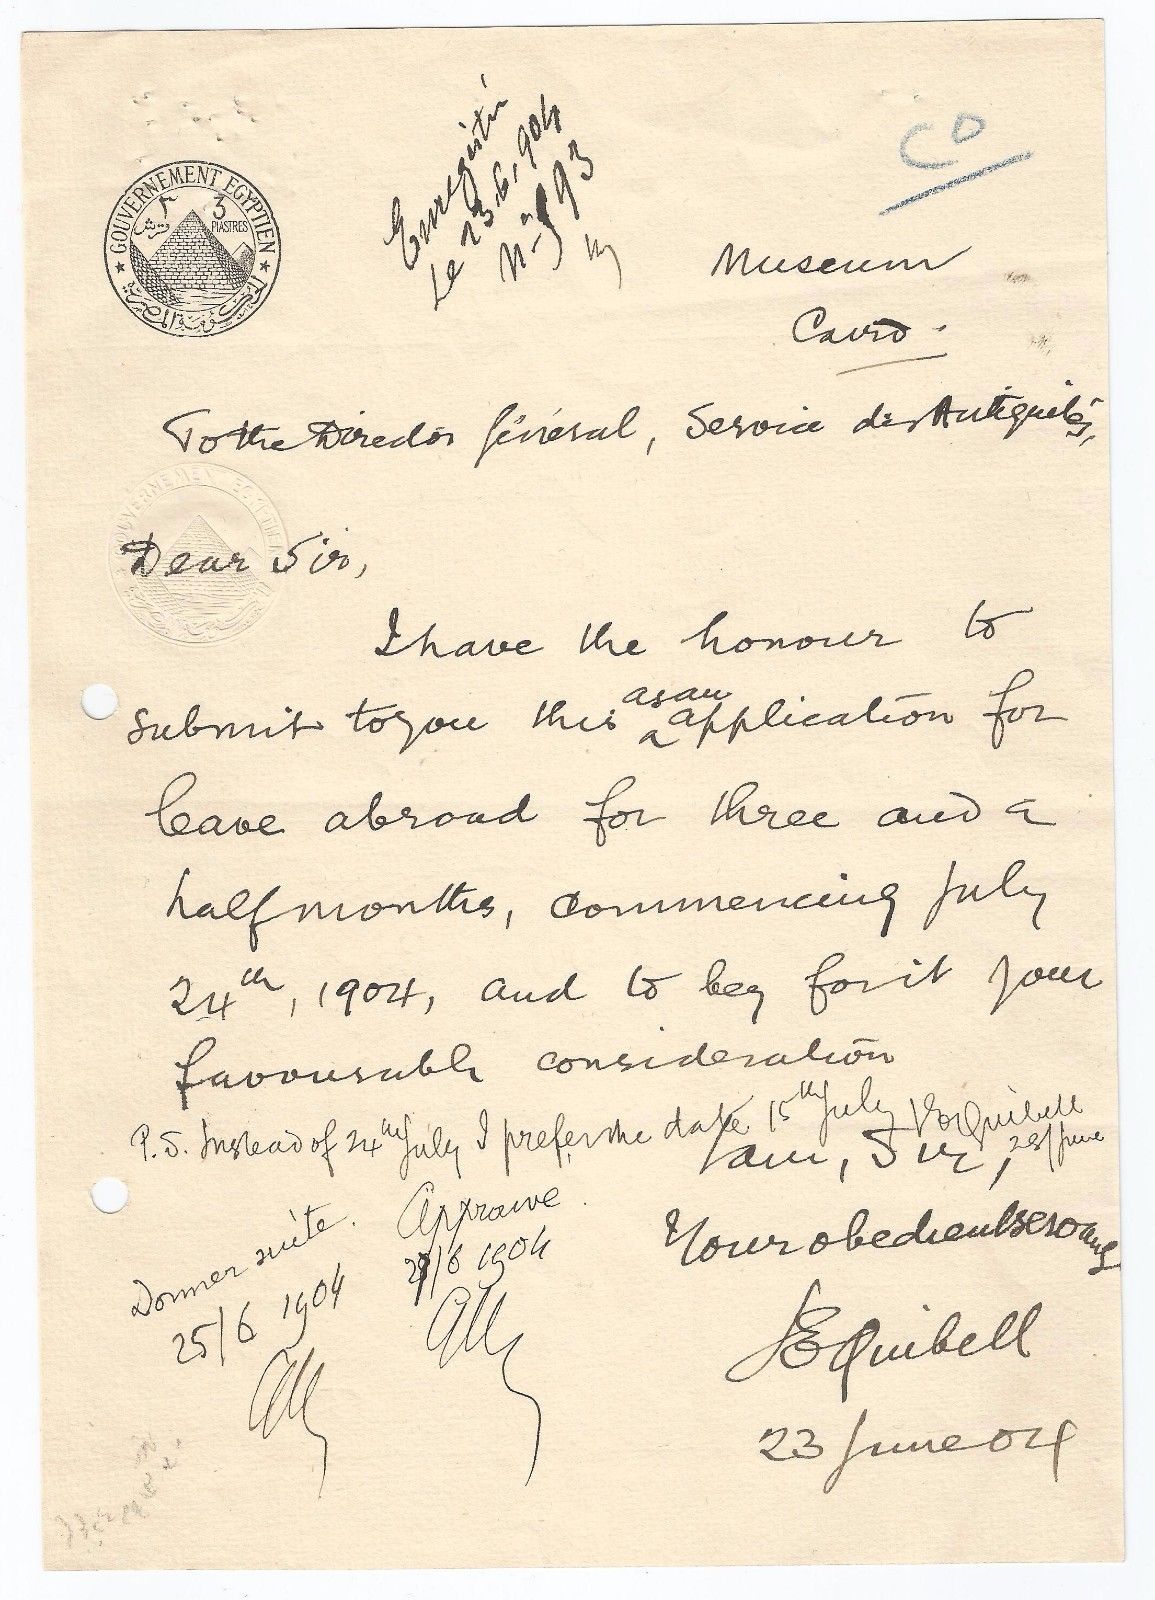 GOUVERNEMENT EGYPTIEN
٣ 3
قرش PIASTRES
الحكومة المصرية
Enregistré
Le 23.6.904
CD
Museum
Cairo.
To the Director Général, Service des Antiquités,
GOUVERNEMENT EGYPTIEN
Dear Sir,
I have the honour to
submit to you this as an
a application for
leave abroad for three and a
half months, commencing July
24th, 1904, and to beg for it your
favourable consideration
P.S. Instead of 24th July I prefer the date 15th July JEQuibell
28/June
I am, Sir,
Your obedient servant
JEQuibell
23 June 04
Donner suite.
25/6 1904
Approuvé
/6 1904